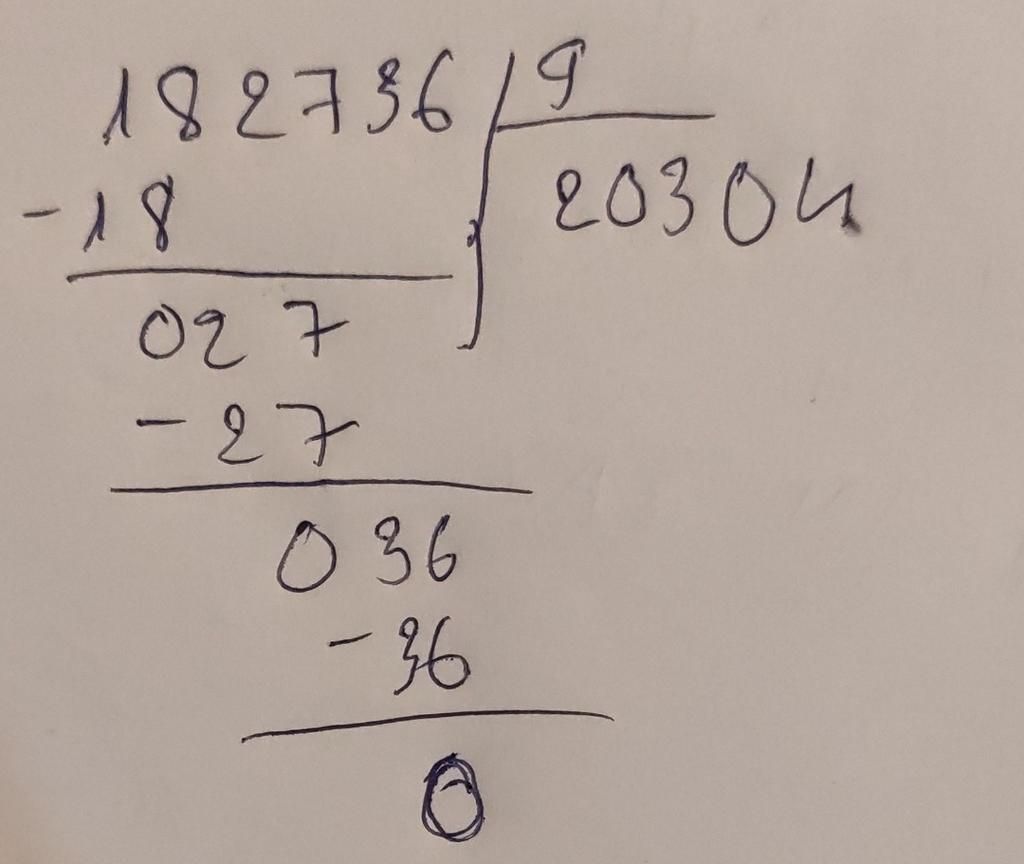 182736 9
-18 20304
027
-27
036
-36
0